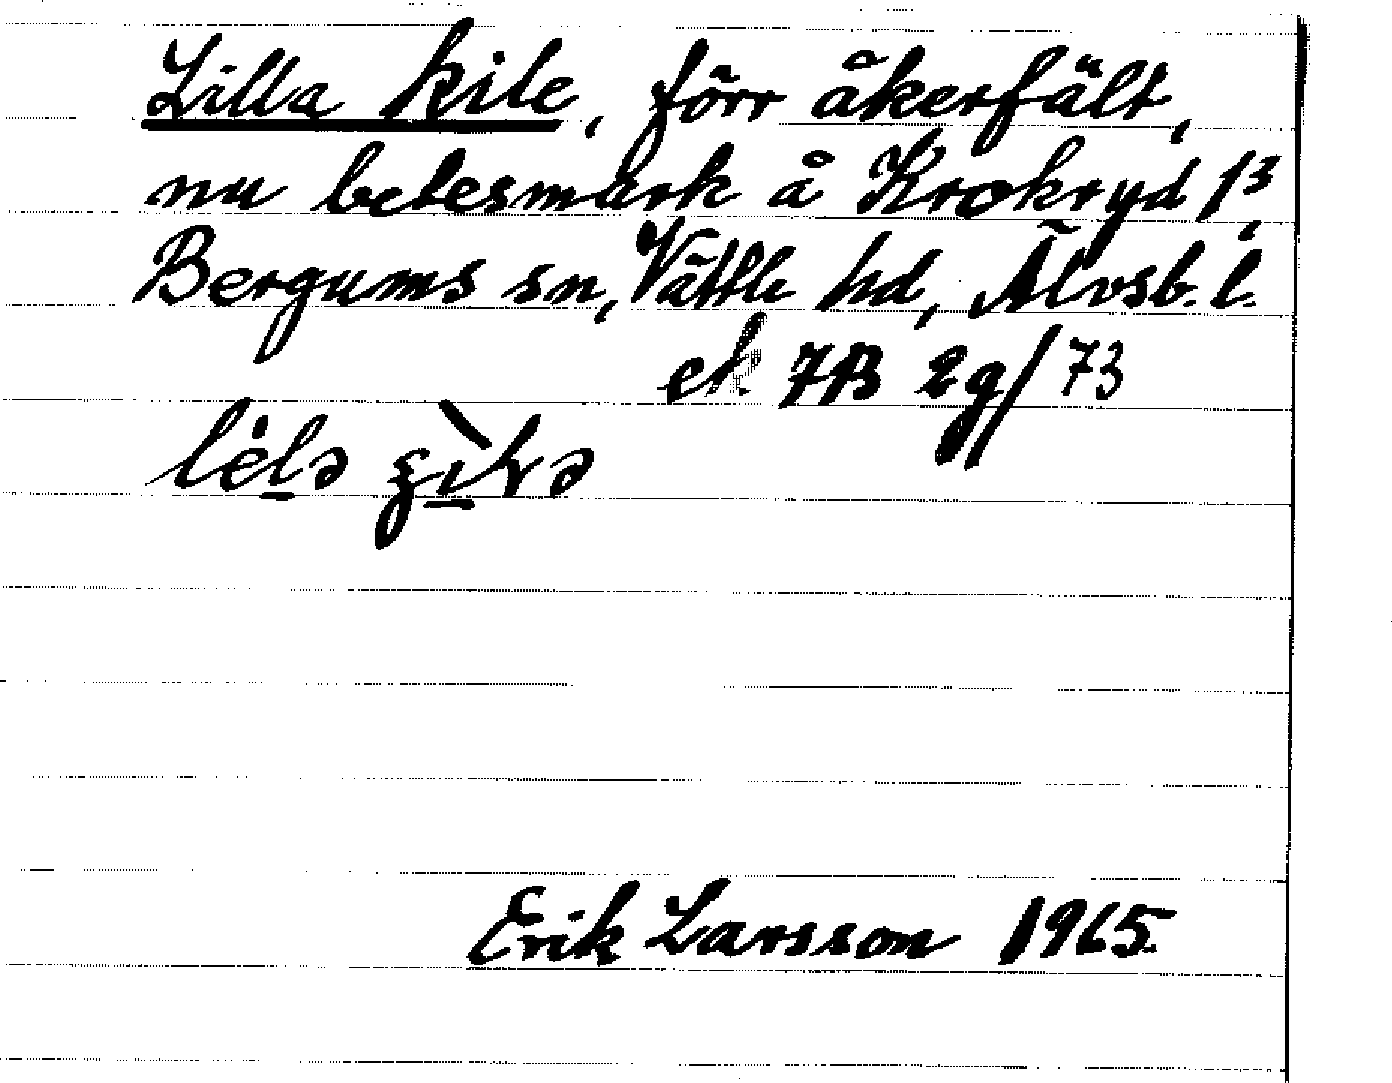 Lilla Kile, förr åkerfält,
nu betesmark å Krokryd 1³,
Bergums sn, Vättle hd, Älvsb. l.
ek 7B 2g/73
Erik Larsson 1965.